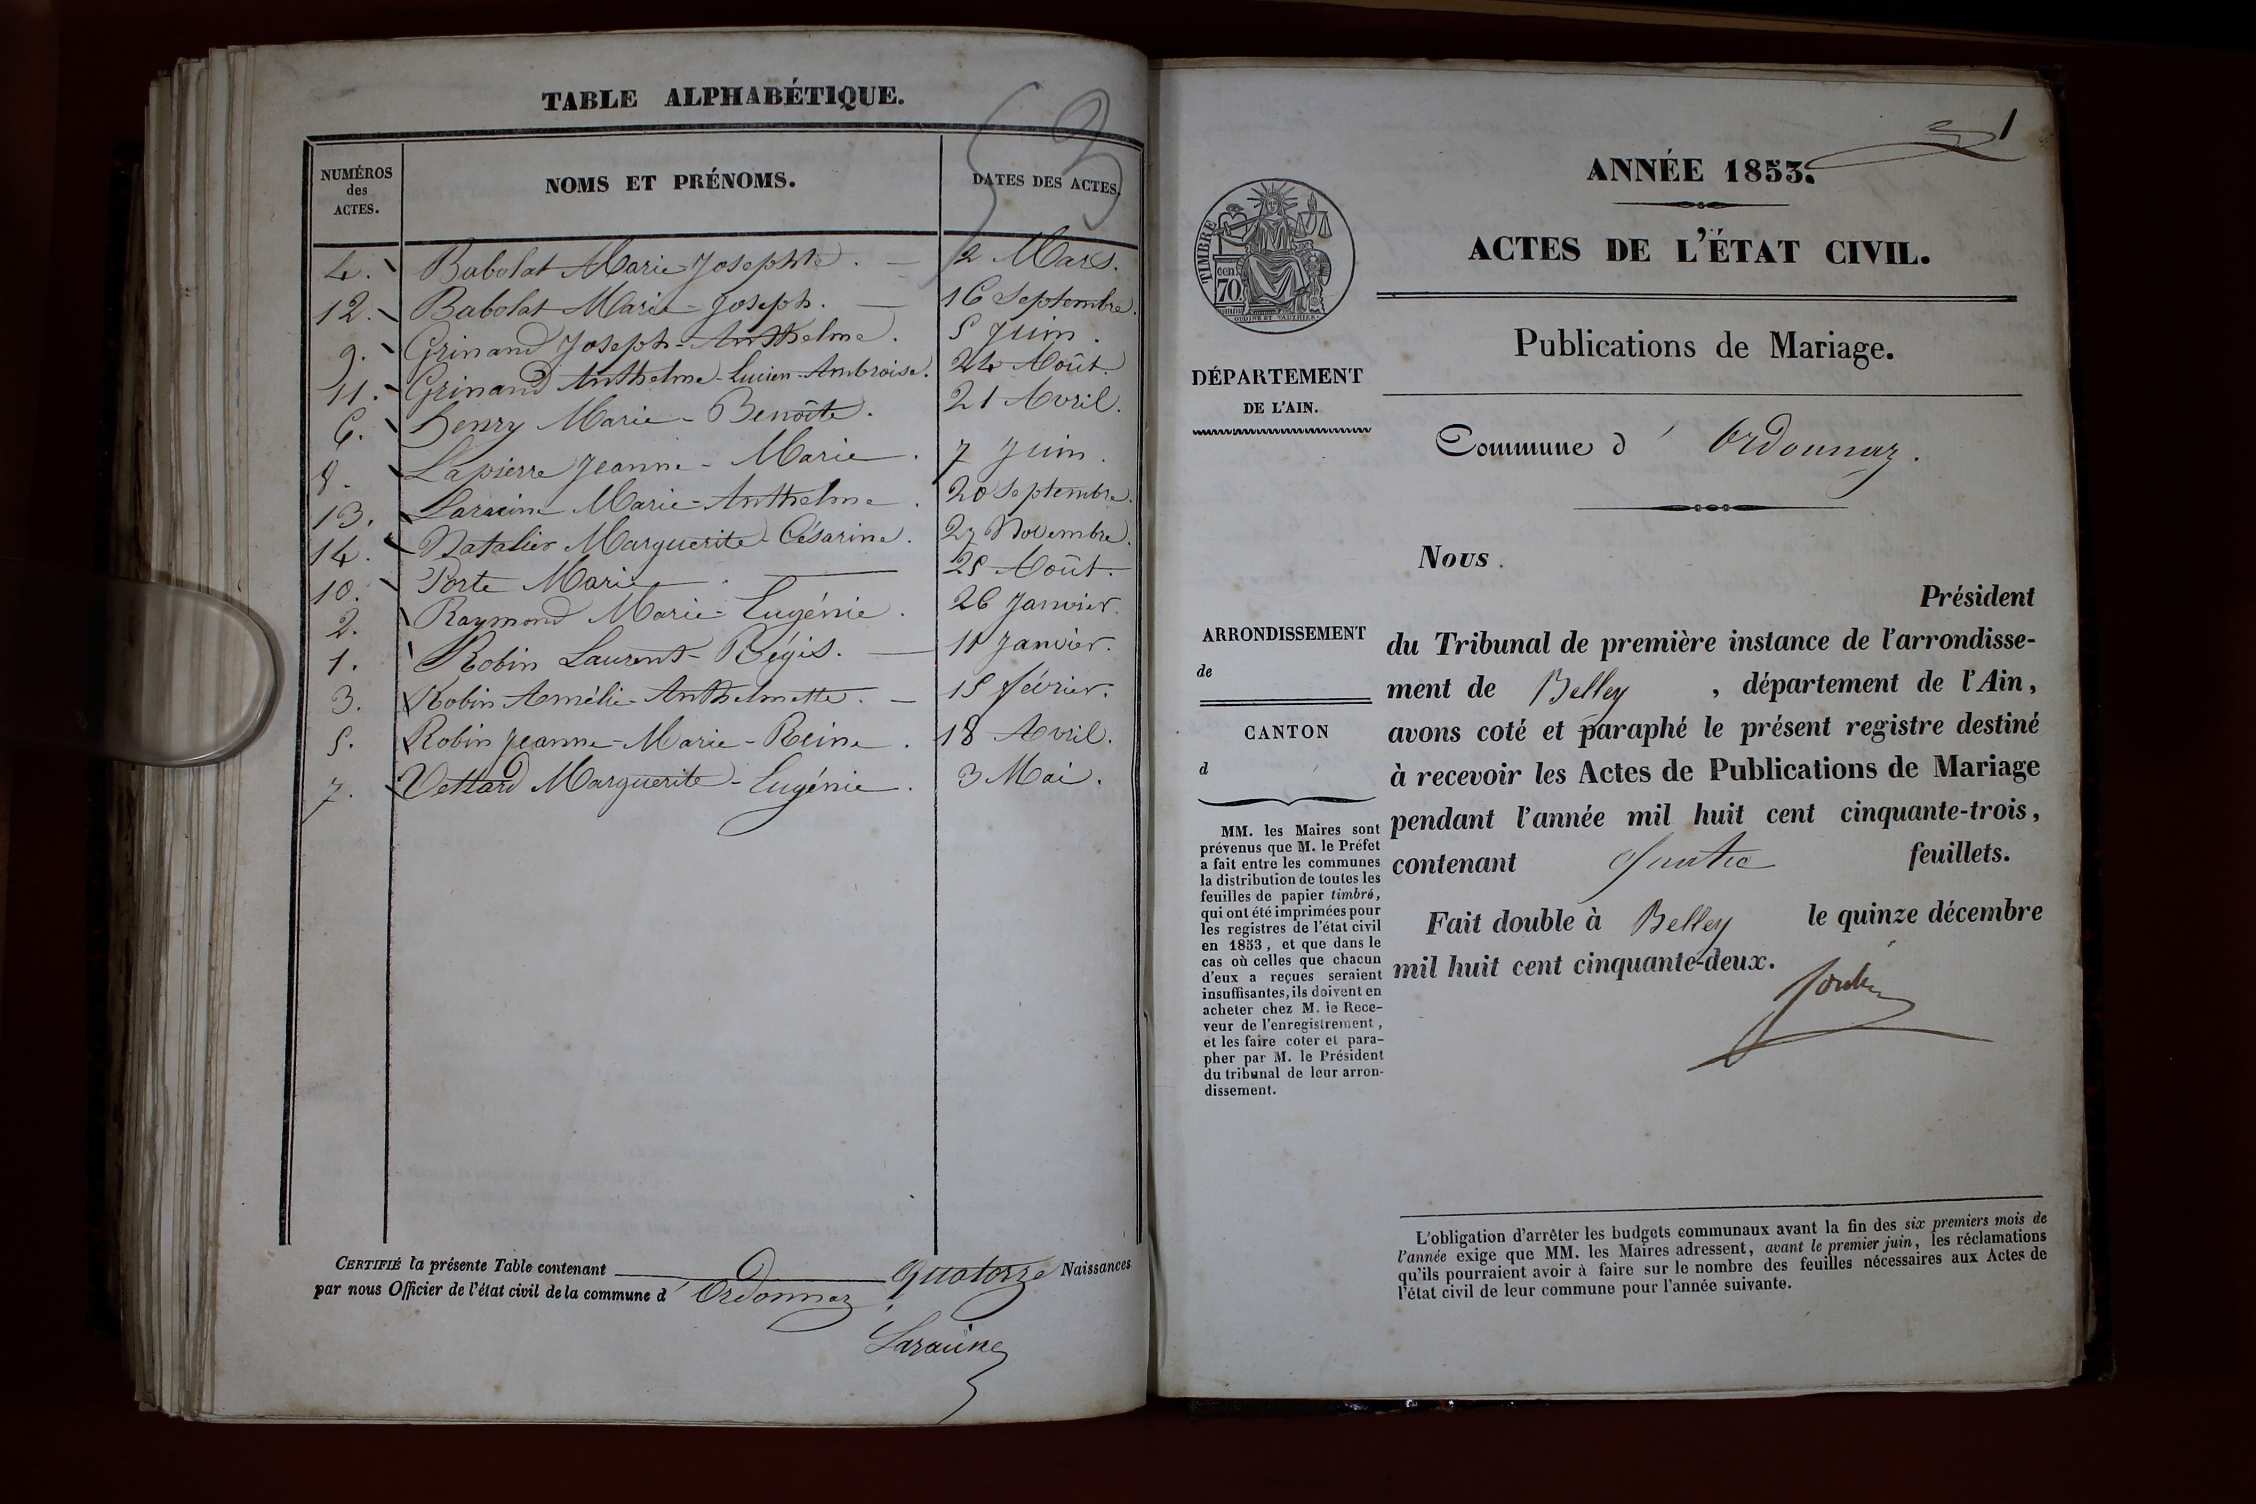 TABLE ALPHABÉTIQUE.
53
NUMÉROS des ACTES. NOMS ET PRÉNOMS. DATES DES ACTES.
4. Babolat Marie Josephte. 2 Mars.
12. Babolat Marie-Joseph. 16 Septembre.
9. Grinand Joseph-Anthelme. 5 Juin.
11. Grinand Anthelme-Lucien-Ambroise. 24 Août.
6. Henry Marie-Benoîte. 21 Avril.
8. Lapierre Jeanne-Marie. 7 Juin.
13. Laracine Marie-Anthelme. 20 Septembre.
14. Natalier Marguerite-Césarine. 27 Novembre.
10. Porte Marie. 25 Août.
2. Raymond Marie-Eugénie. 26 Janvier.
1. Robin Laurent-Régis. 11 Janvier.
3. Robin Amélie-Anthelmette. 15 février.
5. Robin Jeanne-Marie-Reine. 18 Avril.
7. Vettard Marguerite-Eugénie. 3 Mai.
CERTIFIÉ la présente Table contenant quatorze Naissances
par nous Officier de l'état civil de la commune d'Ordonnaz.
Laracine
1
ANNÉE 1853.
ACTES DE L'ÉTAT CIVIL.
TIMBRE
cen.
70.
Publications de Mariage.
DÉPARTEMENT
DE L'AIN.
Commune d'Ordonnaz.
Nous
Président
ARRONDISSEMENT
de
CANTON
d
du Tribunal de première instance de l'arrondisse-
ment de Belley, département de l'Ain,
avons coté et paraphé le présent registre destiné
à recevoir les Actes de Publications de Mariage
pendant l'année mil huit cent cinquante-trois,
contenant quatre feuillets.
Fait double à Belley le quinze décembre
mil huit cent cinquante-deux.
MM. les Maires sont
prévenus que M. le Préfet
a fait entre les communes
la distribution de toutes les
feuilles de papier timbré,
qui ont été imprimées pour
les registres de l'état civil
en 1853, et que dans le
cas où celles que chacun
d'eux a reçues seraient
insuffisantes, ils doivent en
acheter chez M. le Rece-
veur de l'enregistrement,
et les faire coter et para-
pher par M. le Président
du tribunal de leur arron-
dissement.
L'obligation d'arrêter les budgets communaux avant la fin des six premiers mois de
l'année exige que MM. les Maires adressent, avant le premier juin, les réclamations
qu'ils pourraient avoir à faire sur le nombre des feuilles nécessaires aux Actes de
l'état civil de leur commune pour l'année suivante.